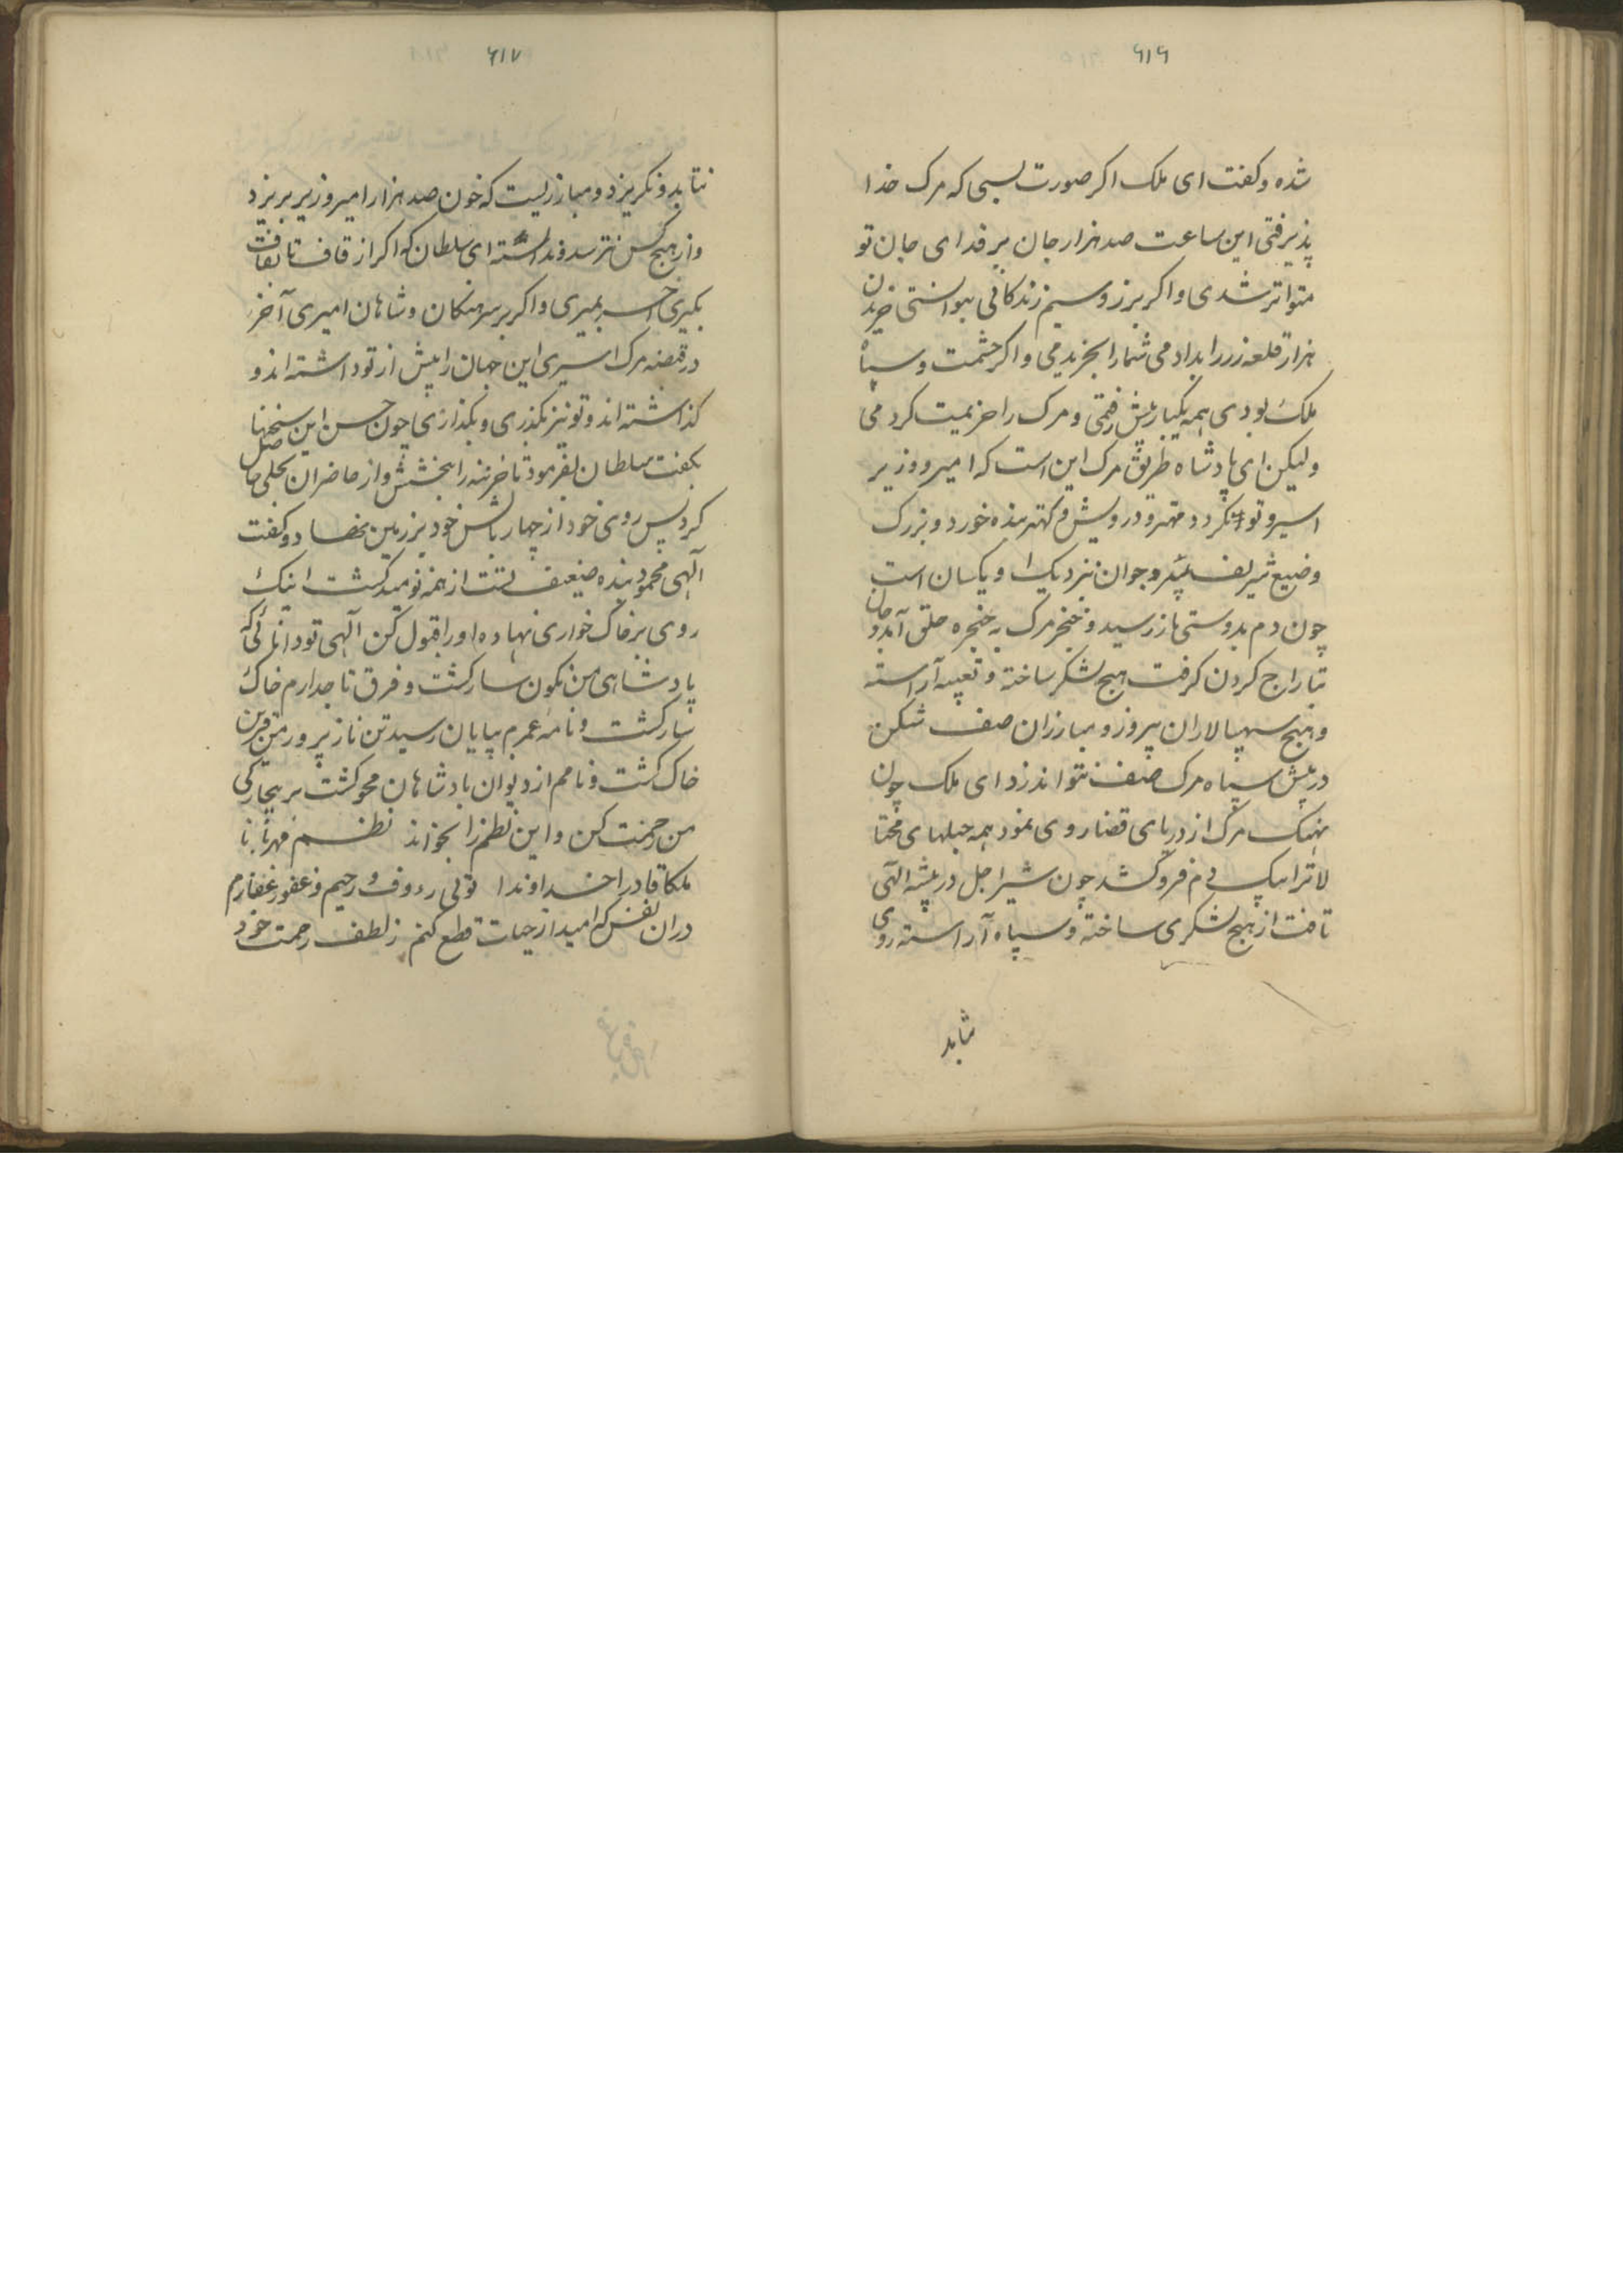 ۶۱۶
شده و کفت ای ملک اکر صورت بسی که مرک خدا
پذیرفتی این ساعت صد هزار جان بر فدای جان تو
متواتر شدی و اکر بزر و سیم زندکانی بتوانستی خریدن
هزار قلعه زر را بدادمی شما را بخریدمی و اکر حشمت و سپاه
ملک بودی همه یکبار پیش رفتمی و مرک را هزیمت کردمی
ولیکن ای پادشاه طریق مرک این است که امیر و وزیر
اسیر و توانکر و مهتر و درویش و کهتر بنده خورد و بزرک
وضیع شریف پیر و جوان نزدیک او یکسان است
چون دم بدوستی باز رسید و خنجر مرک به خنجره حلق آمد و جان
تاراج کردن کرفت هیچ لشکر ساخته و تعبیه آراسته
و هیچ سپهسالاران پیروز و مبارزان صف شکن
در پیش سپاه مرک صف نتواند زد ای ملک چون
نهنک مرک از دریای قضا روی نمود همه حیلهای محتا
لا ترا بیک دم فرو کشد چون شیر اجل در بیشه الهی
تافت از هیچ لشکری ساخته و سپاه آراسته روی
شابد
۶۱۷
نتابد و نکریزد و مبارزیست که خون صد هزار امیر وزیر بریزد
و از هیچ کس نترسد و ندانسته ای سلطان که اکر از قاف تا بقاف
بکیری آخر بمیری و اکر بر سرهنکان و شاهان امیری آخر
در قبضه مرک اسیری این جهان را پیش از تو داشته اند و
کذاشته اند و تو نیز بکذری و بکذاری چون حسن این سخنها
بکفت سلطان بفرمود تا خزینه را بخشش و از حاضران بحلی حاصل
کرد پس روی خود از چهار بالش خود بر زمین نهاد و کفت
آلهی محمود بنده ضعیف تست از همه نومید کشت اینک
روی بر خاک خواری نهاده او را قبول کن آلهی تو دانائی که
پادشاهی من نکون سار کشت و فرق تاجدارم خاک
سار کشت و نامه عمرم بپایان رسید تن ناز پرور من قرین
خاک کشت و نامم از دیوان بادشاهان محو کشت بر بیچارکی
من رحمت کن و این نظم را بخواند نظم مهربانا
ملکا قادرا خداوندا توئی رءوف و رحیم و غفور غفارم
دران نفس که امید از حیات قطع کنم ز لطف رحمت خود